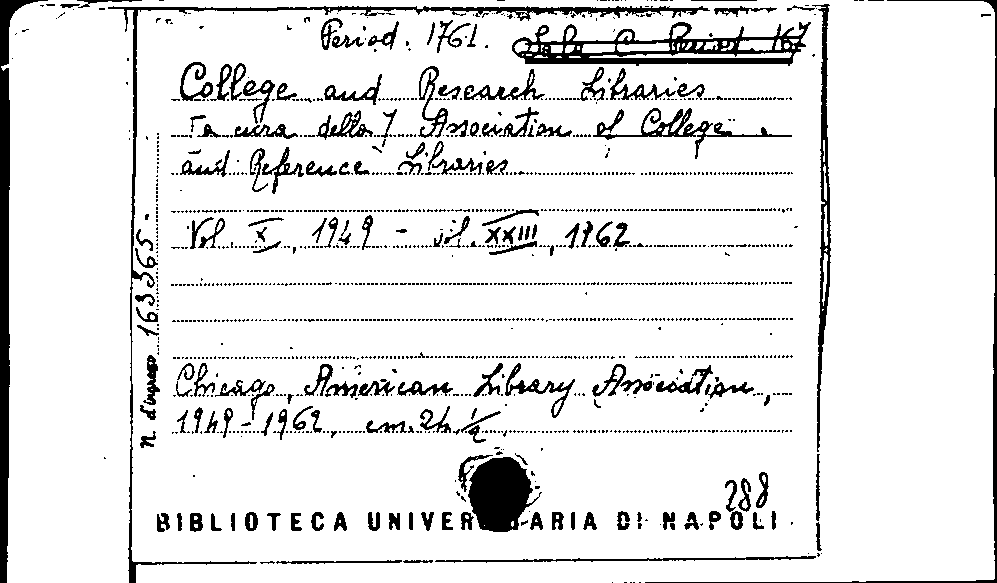 Period. 1761. Sala C. Period. 167
College and Research Libraries.
[a cura della] Association of College
and Reference Libraries.
Vol. X, 1949 - vol. XXIII, 1962.
Chicago, American Library Association,
1949-1962, cm. 24 1/2.
N. d'ingresso 163365.
288
BIBLIOTECA UNIVER ARIA DI NAPOLI